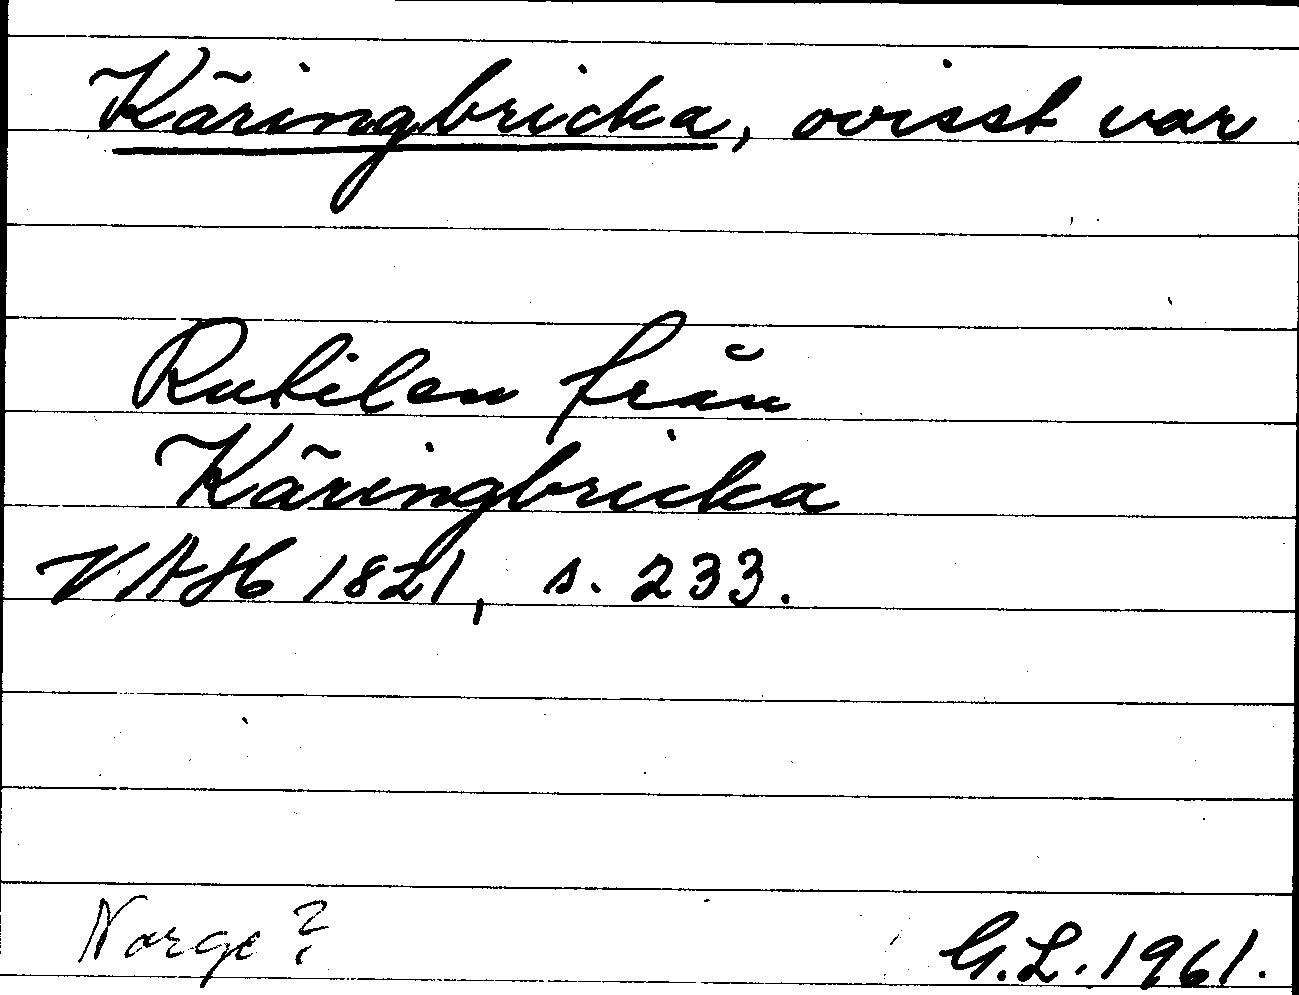 Käringbricka, ovisst var
Rutilen från
Käringbricka
VAH 1821, s. 233.
Norge?
G.L. 1961.